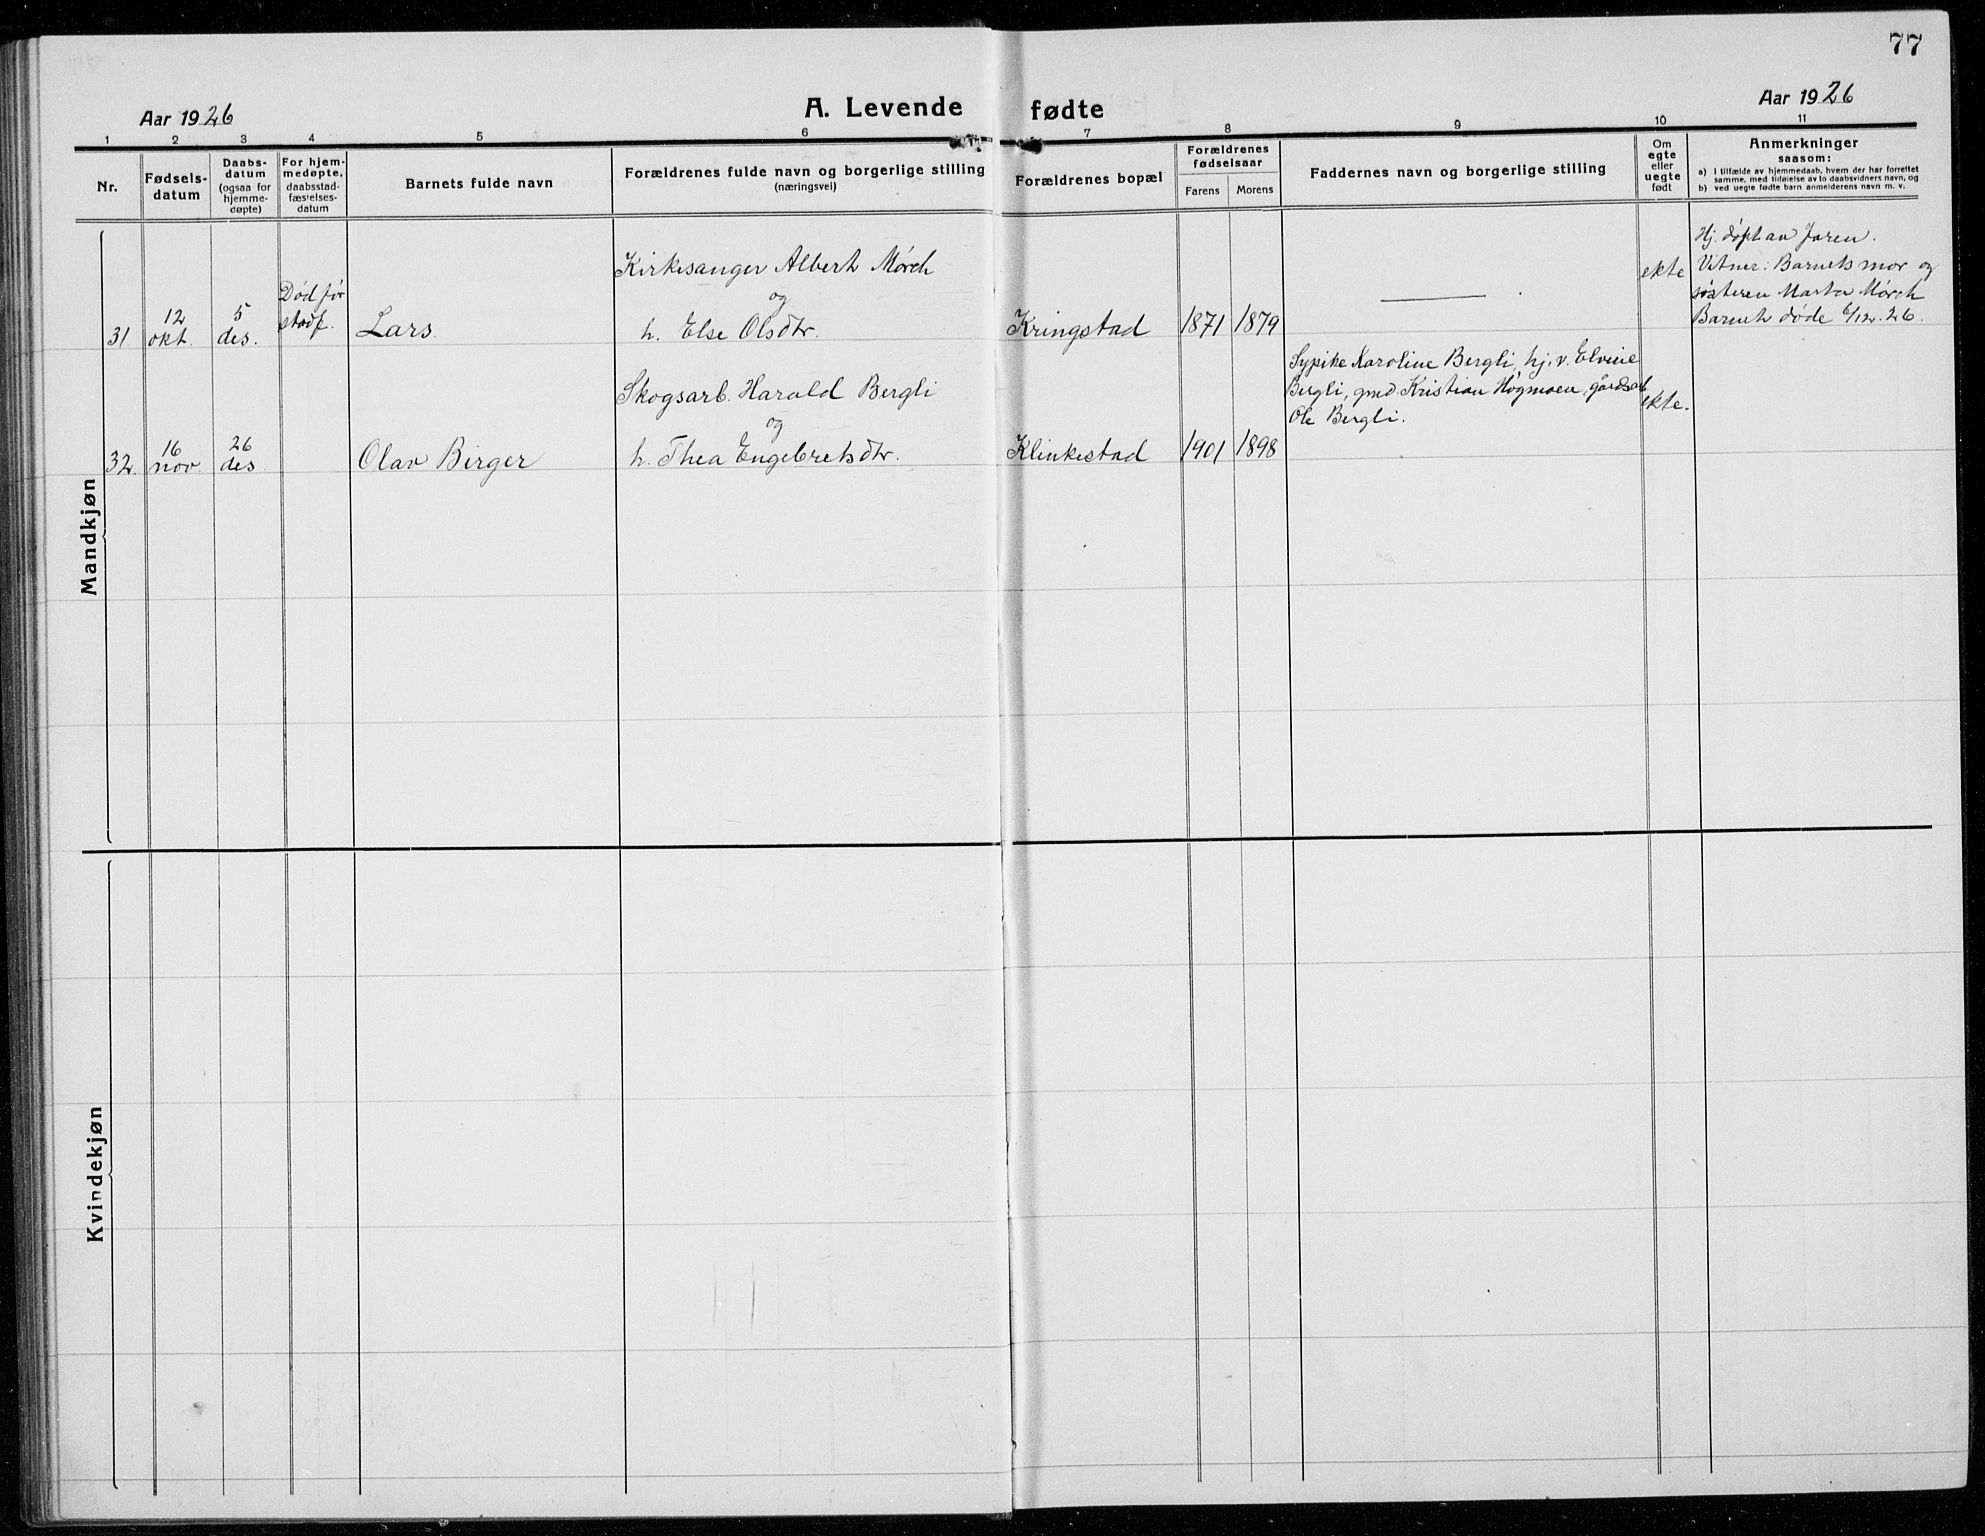 77
Aar 1926
A. Levende fødte
Aar 1926
1 2 3 4 5 6 7 8 9 10 11
Nr.
Fødsels-
datum
Daabs-
datum
(ogsaa for
hjemme-
døpte)
For hjem-
medøpte,
daabsstad-
fæstelses-
datum
Barnets fulde navn
Forældrenes fulde navn og borgerlige stilling
(næringsvei)
Forældrenes bopæl
Forældrenes
fødselsaar
Farens Morens
Faddernes navn og borgerlige stilling
Om
egte
eller
uegte
født
Anmerkninger
saasom:
a) I tilfælde av hjemmedaab, hvem der har forrettet
samme, med tilføielse av to daabsvidners navn, og
b) ved uegte fødte barn anmelderens navn m. v.
Mandkjøn
31
12
okt.
5
des.
Død før
stadf.
Lars.
Kirkesanger Albert Mørch
og
h. Else Olsdtr.
Kringstad
1871 1879
ekte
Hj. døpt av faren.
Vitner: Barnets mor og
søsteren Marta Mørch
Barnet døde 6/12. 26.
32.
16
nov.
26
des
Olav Birger
Skogsarb. Harald Bergli
og
h. Thea Engebretsdtr.
Klinkestad
1901 1898
Sypike Karoline Bergli, hj. v. Elvine
Bergli, gmd. Kristian Høgmoen, gårdsarb
Ole Bergli.
ekte.
Kvindekjøn